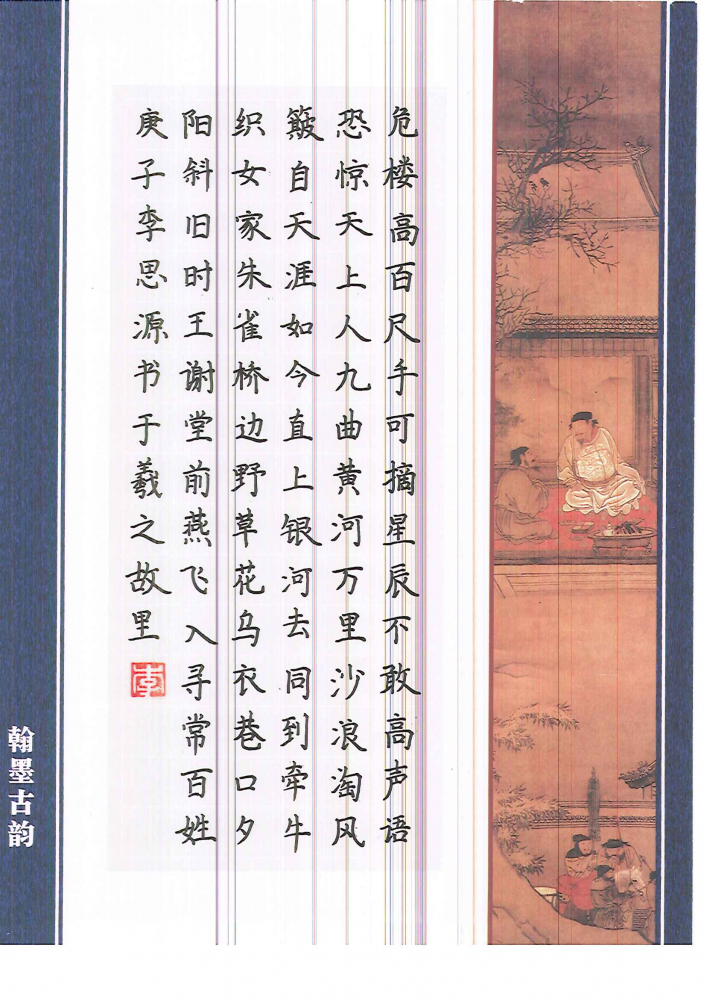 危楼高百尺手可摘星辰不敢高声语
恐惊天上人九曲黄河万里沙浪淘风
簸自天涯如今直上银河去同到牵牛
织女家朱雀桥边野草花乌衣巷口夕
阳斜旧时王谢堂前燕飞入寻常百姓
庚子李思源书于羲之故里
李
翰墨古韵